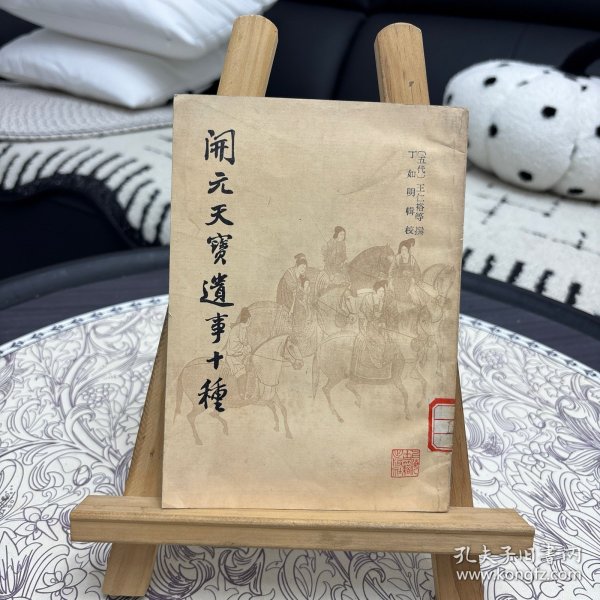 開元天寶遺事十種
〔五代〕王仁裕等 撰
丁如明 輯校
孔夫子旧书网
www.kongfz.com